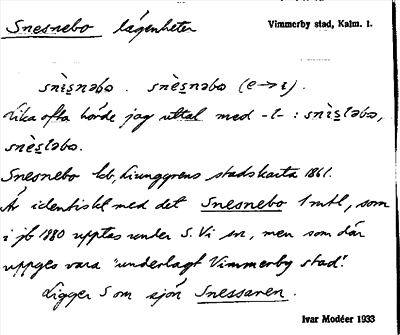 Snesnebo lägenheter
Vimmerby stad, Kalm. l.
snìs̱nəbo . snès̱nəbo (e→i).
Lika ofta hörde jag uttal med -l- : snìs̱ləbo,
snès̱ləbo.
Snesnebo lzb, Ljunggrens stadskarta 1861.
Är identiskt med det Snesnebo 1 mtl, som
i jb 1880 upptas under S. Vi sn, men som där
uppges vara "underlagt Vimmerby stad".
Ligger S om sjön Snessaren.
Ivar Modéer 1933